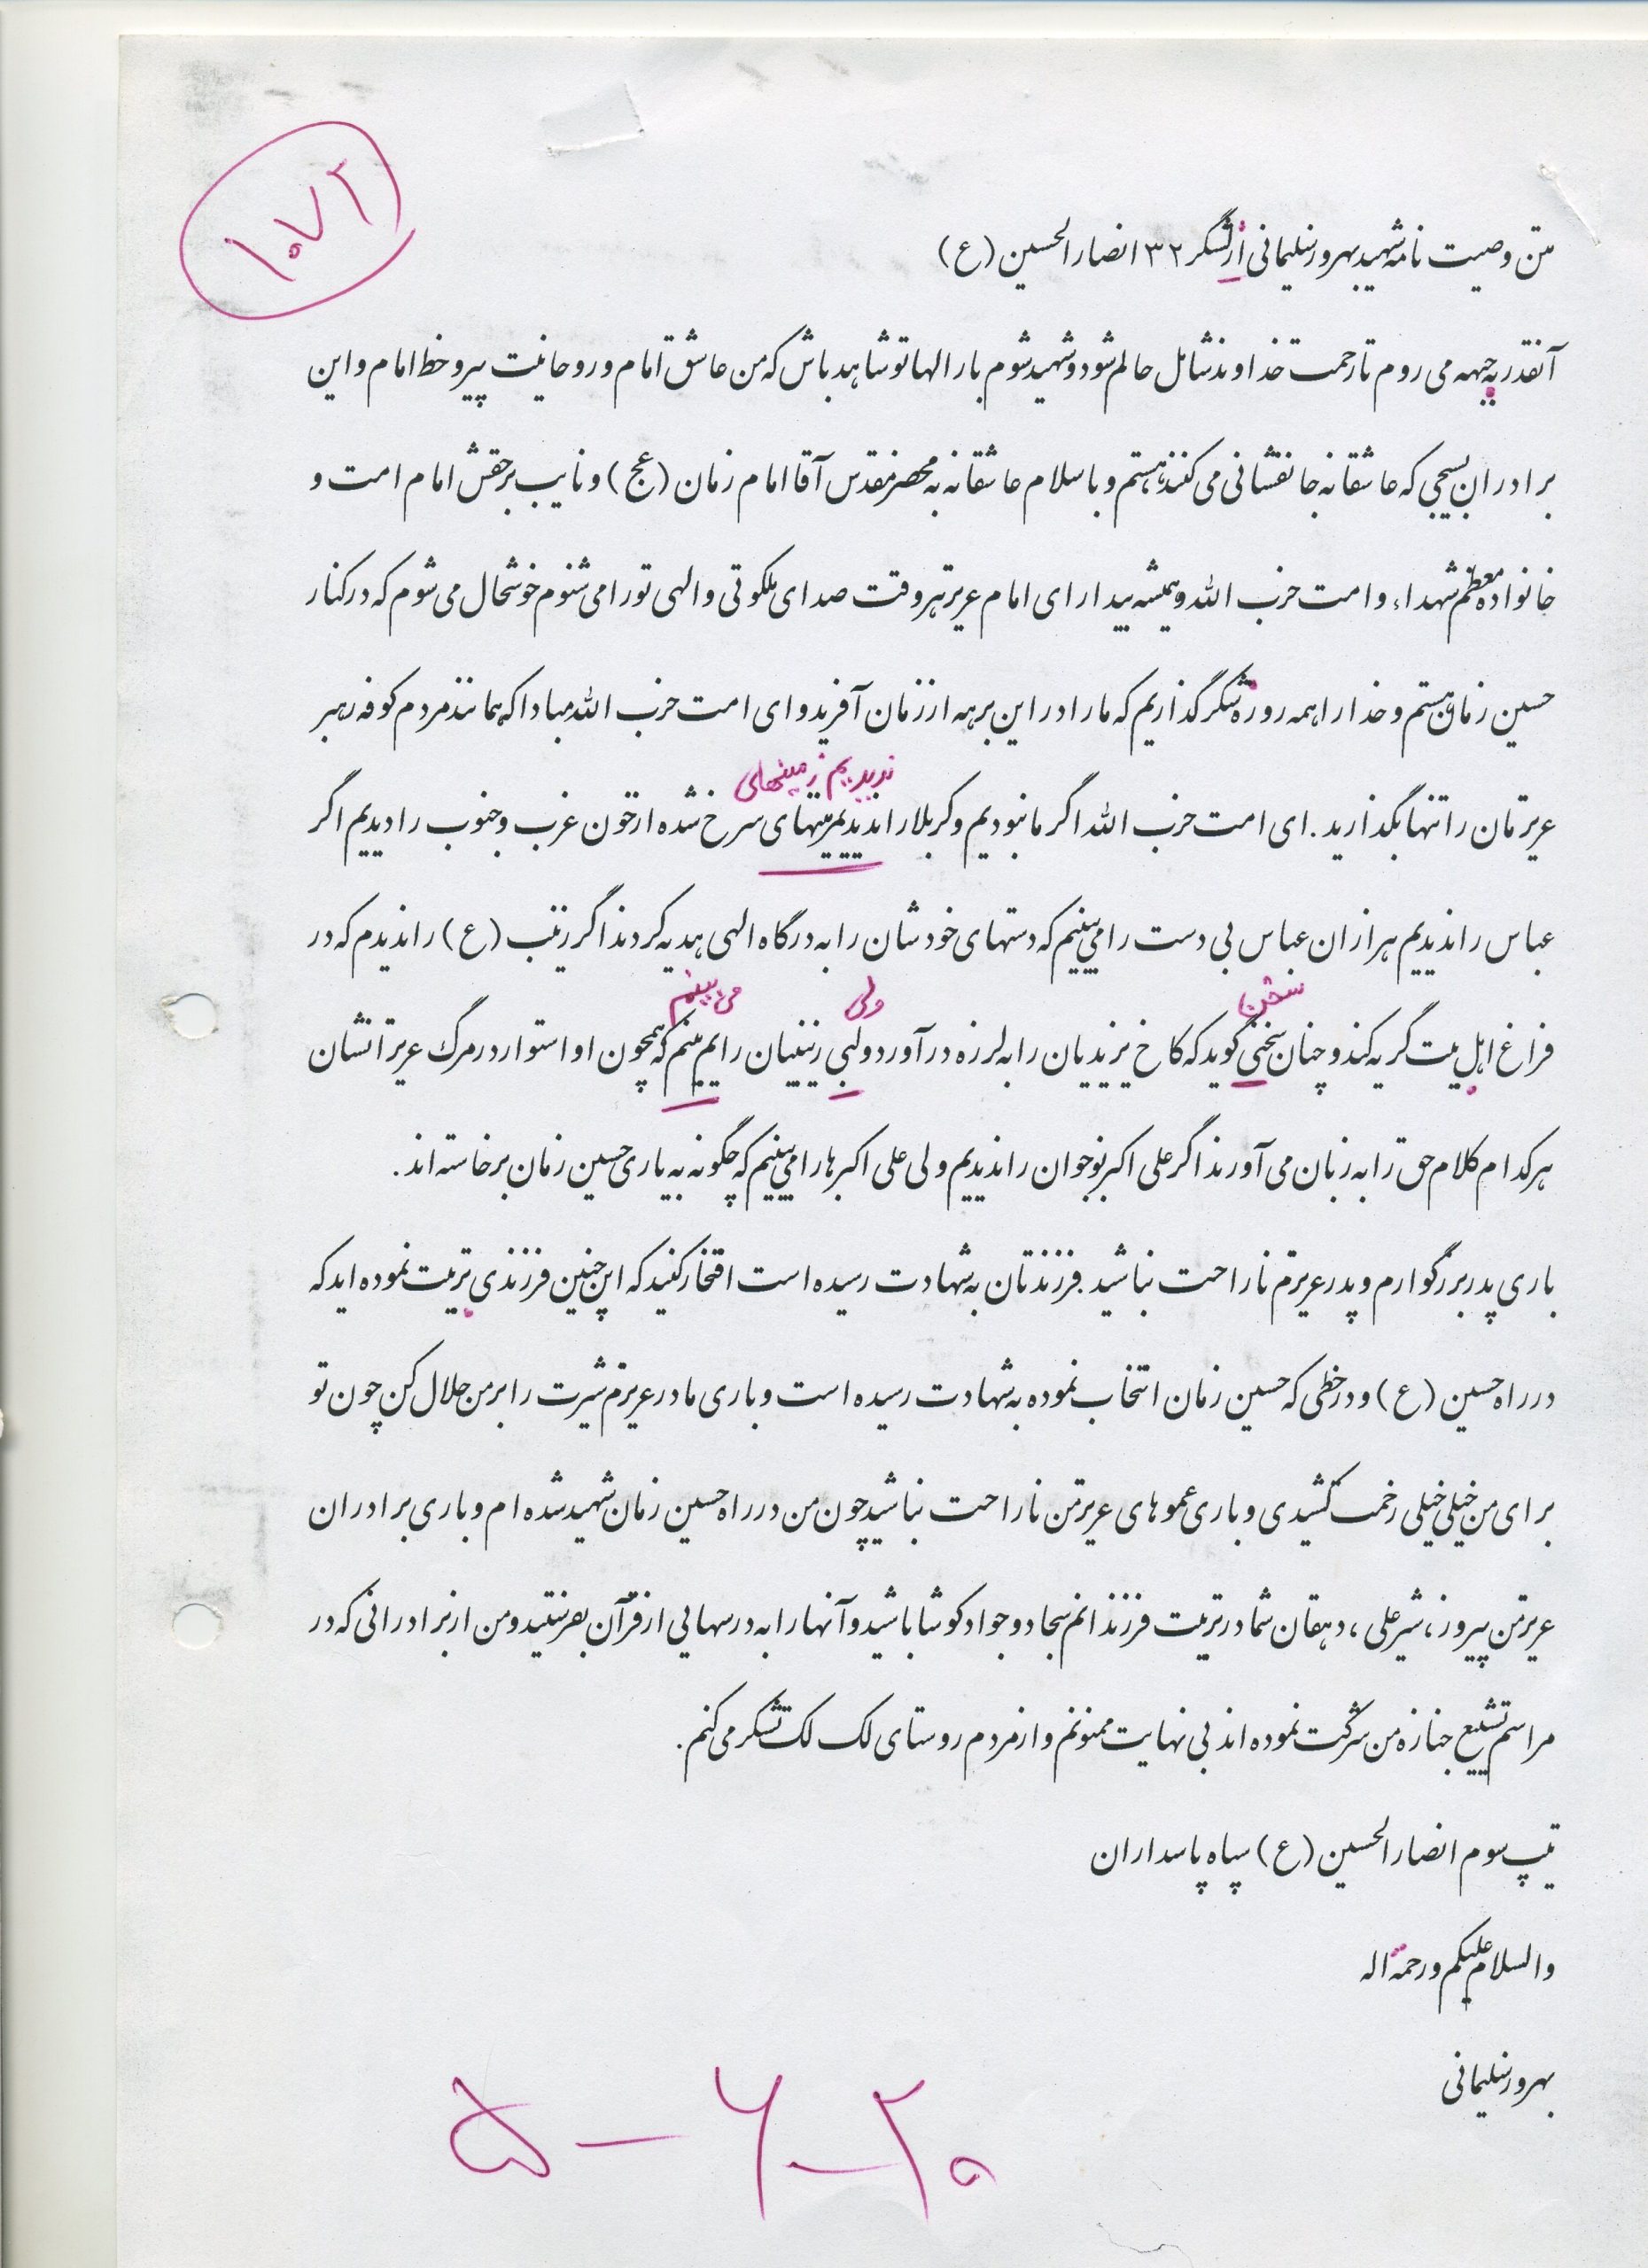 ۱۰۷۲
متن وصیت نامه شهید بهروز سلیمانی از لشگر ۳۲ انصارالحسین (ع)
آنقدر به جبهه می روم تا رحمت خداوند شامل حالم شود و شهید شوم بارالها تو شاهد باش که من عاشق امام و روحانیت پیرو خط امام و این
برادران بسیجی که عاشقانه جانفشانی می کنند هستم و با سلام عاشقانه به محضر مقدس آقا امام زمان (عج) و نایب برحقش امام امت و
خانواده معظم شهداء و امت حزب الله و همیشه بیدار ای امام عزیز هر وقت صدای ملکوتی و الهی تو را می شنوم خوشحال می شوم که در کنار
حسین زمان هستم و خدا را همه روزه شکر گذاریم که ما را در این برهه از زمان آفرید و ای امت حزب الله مبادا که همانند مردم کوفه رهبر
ندیدیم زمینهای
عزیزتان را تنها بگذارید. ای امت حزب الله اگر ما نبودیم و کربلا را ندیدیم زمینهای سرخ شده از خون غرب و جنوب را دیدیم اگر
عباس را ندیدیم هزاران عباس بی دست را می بینیم که دستهای خودشان را به درگاه الهی هدیه کردند اگر زینب (ع) را ندیدم که در
سخن ولی می بینم
فراغ اهل بیت گریه کند و چنان سخنی گوید که کاخ یزیدیان را به لرزه درآورد ولی زینبیان را می بینم که همچون او استوار در مرگ عزیزانشان
هرکدام کلام حق را به زبان می آورند اگر علی اکبر نوجوان را ندیدیم ولی علی اکبرها را می بینیم که چگونه به یاری حسین زمان برخاسته اند.
باری پدر بزرگوارم و پدر عزیزم ناراحت نباشید. فرزندتان به شهادت رسیده است افتخار کنید که این چنین فرزندی تربیت نموده اید که
در راه حسین (ع) و در خطی که حسین زمان انتخاب نموده به شهادت رسیده است و باری مادر عزیزم شیرت را بر من حلال کن چون تو
برای من خیلی خیلی زحمت کشیدی و باری عموهای عزیز من ناراحت نباشید چون من در راه حسین زمان شهید شده ام و باری برادران
عزیز من پیروز، شیرعلی، دهقان شما در تربیت فرزندانم سجاد و جواد کوشا باشید و آنها را به درسهایی از قرآن بفرستید و من از برادرانی که در
مراسم تشییع جنازه من شرکت نموده اند بی نهایت ممنونم و از مردم روستای لک لک تشکر می کنم.
تیپ سوم انصارالحسین (ع) سپاه پاسداران
والسلام علیکم و رحمة اله
بهروز سلیمانی
۵-۶-۲۰